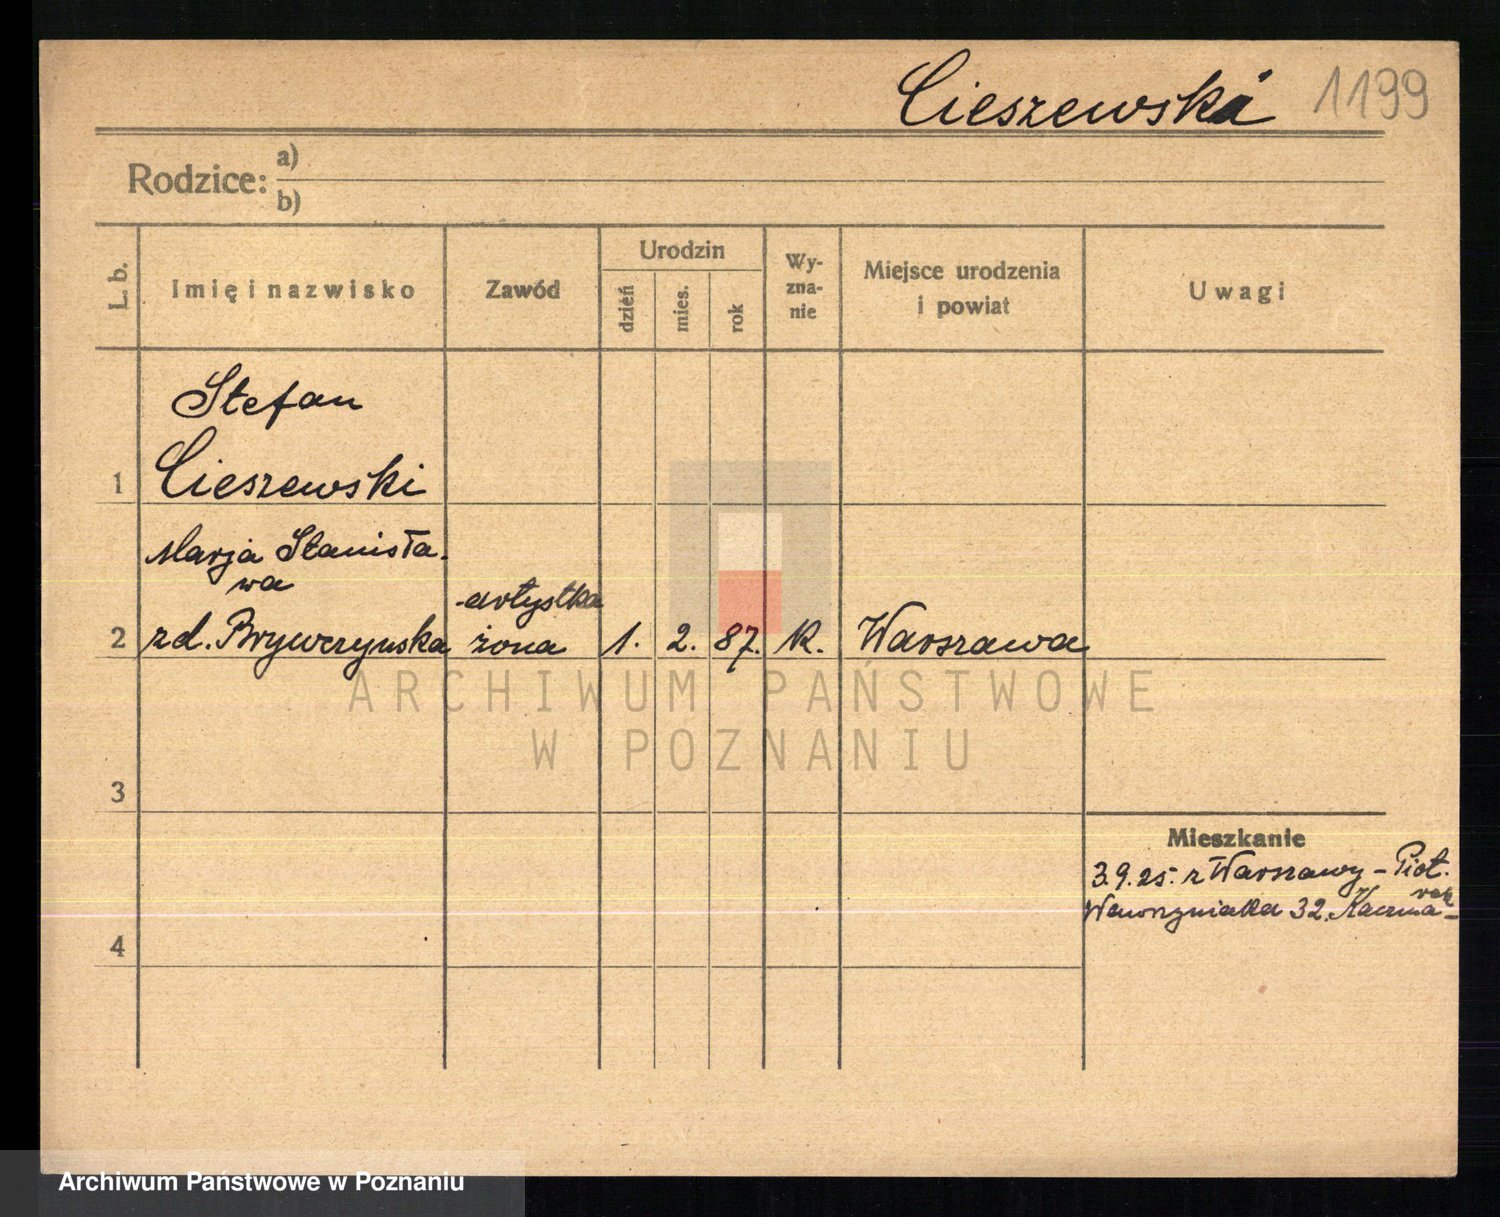 Cieszewska 1199
Rodzice: a)
b)
L. b.
Imię i nazwisko
Zawód
Urodzin
dzień
mies.
rok
Wy-
zna-
nie
Miejsce urodzenia
i powiat
Uwagi
Stefan
1 Cieszewski
Marja Stanisła-
wa
artystka
2 zd. Brywczynska żona 1. 2. 87. K. Warszawa
ARCHIWUM PAŃSTWOWE
W POZNANIU
3
Mieszkanie
3.9.25. z Warszawy - Piotr.
Wawrzyniaka 32. Kaczma-
rek
4
Archiwum Państwowe w Poznaniu